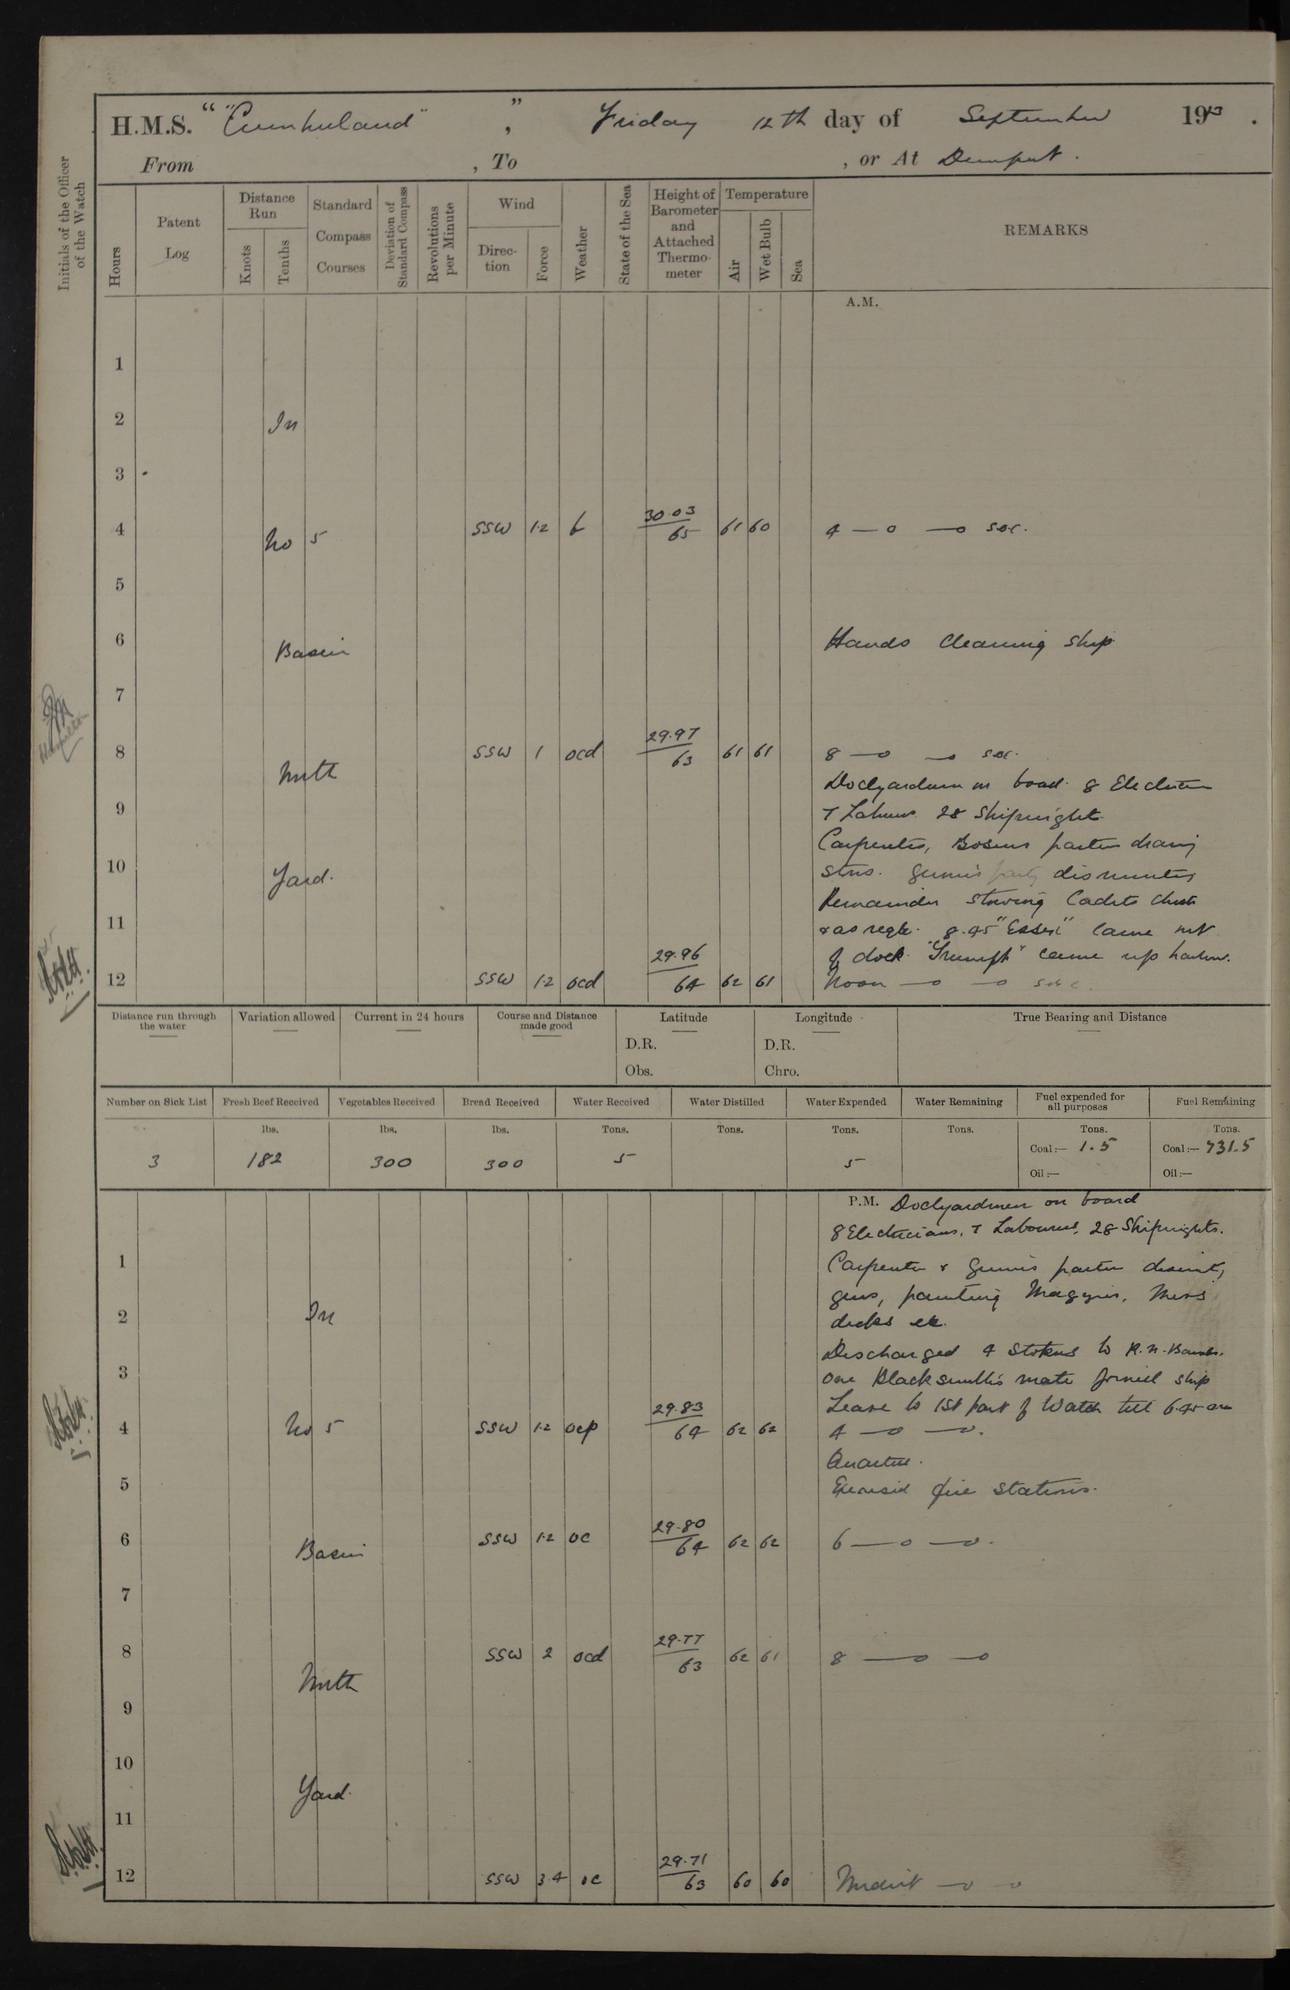 H.M.S. " "Cumberland" " , Friday 12th day of September 1913 .
From , To , or At Devonport .
Initials of the Officer of the Watch
Hours
Patent Log
Distance Run
Knots
Tenths
Standard Compass Courses
Deviation of Standard Compass
Revolutions per Minute
Wind
Direction
Force
Weather
State of the Sea
Height of Barometer and Attached Thermometer
Temperature
Air
Wet Bulb
Sea
REMARKS
A.M.
1
2 In
3
4 No 5 SSW 1·2 b 30·03 65 61 60 4 —o —o soc.
5
6 Basin Hands cleaning ship
7
8 SSW 1 ocd 29·97 63 61 61 8 —o —o soc.
North
Dockyardmen on board. 8 Electricians
9 7 Labourers 28 Shipwrights
Carpenters, Bosuns parties drawing
10 Yard. stores. Gunners party dismounting
Remainder stowing Cadets chests
11 & as reqte. 8.45 "Essex" came out
of dock "Triumph" came up harbour.
12 SSW 1·2 ocd 29·96 64 62 61 Noon —o —o soc.
Distance run through the water
Variation allowed
Current in 24 hours
Course and Distance made good
Latitude
D.R.
Obs.
Longitude
D.R.
Chro.
True Bearing and Distance
Number on Sick List Fresh Beef Received Vegetables Received Bread Received Water Received Water Distilled Water Expended Water Remaining Fuel expended for all purposes Fuel Remaining
lbs. lbs. lbs. Tons. Tons. Tons. Tons. Tons. Tons.
3 182 300 300 5 5 Coal:— 1.5 Coal:— 731.5
Oil:— Oil:—
P.M. Dockyardmen on board
8 Electricians, 7 Labourers, 28 Shipwrights.
1 Carpenters & Gunners parties dismntg
guns, painting Magazines, Mess
2 In decks etc.
Discharged 4 Stokers to R.N. Barracks.
3 One Blacksmith's mate joined ship
Leave to 1st part of Watch till 6.45 am
4 No 5 SSW 1·2 ocp 29·83 64 62 62 4 —o —o.
Quarters.
5 Exercised fire stations.
6 SSW 1·2 oc 29·80 64 62 62 6 —o —o.
Basin
7
8 SSW 2 ocd 29·77 63 62 61 8 —o —o
North
9
10
Yard.
11
12 SSW 3·4 oc 29·71 63 60 60 Midnt —o —o